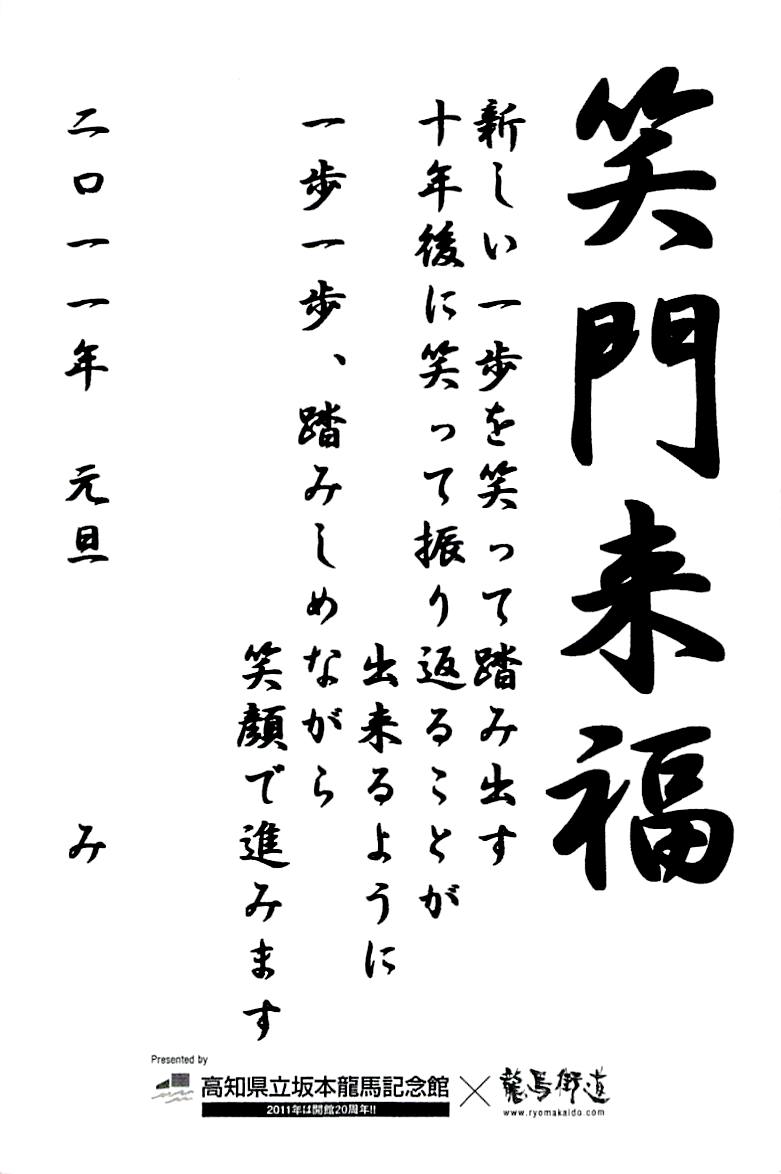 笑門来福
新しい一歩を笑って踏み出す
十年後に笑って振り返ることが
出来るように
一歩一歩、踏みしめながら
笑顔で進みます
二〇一一年 元旦 み
Presented by
高知県立坂本龍馬記念館
2011年は開館20周年!!
×
龍馬街道
www.ryomakaido.com